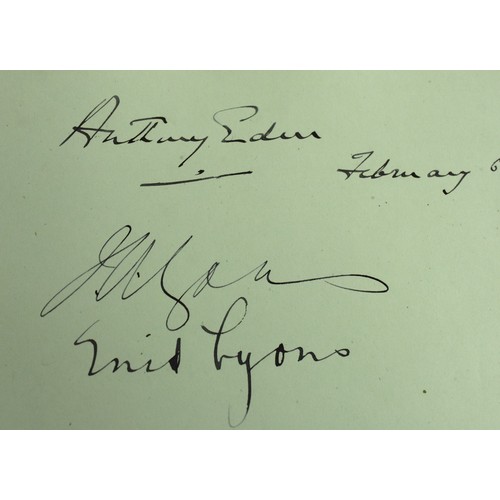 Anthony Eden
February 6
J A Lyons
Enid Lyons